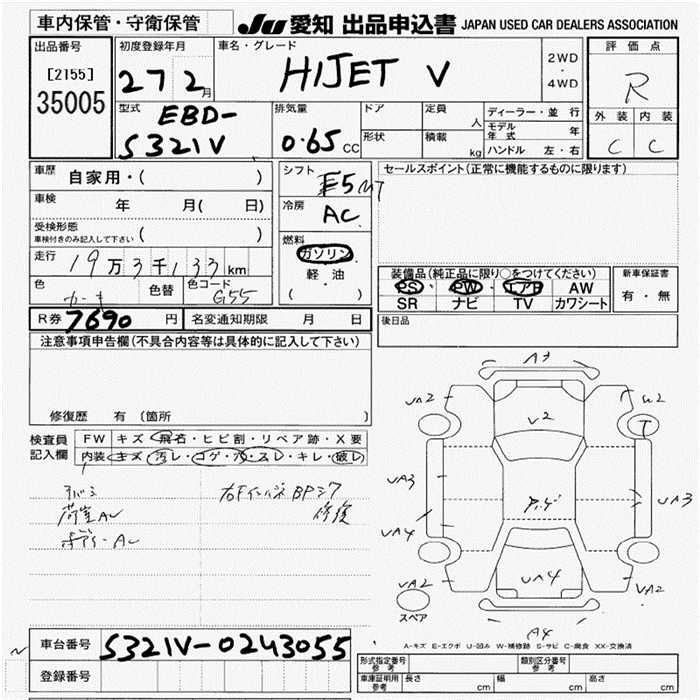 車内保管・守衛保管
JU 愛知 出品申込書 JAPAN USED CAR DEALERS ASSOCIATION
出品番号
[2155]
35005
初度登録年月
27 2月
車名・グレード
HIJET V
2WD
・
4WD
評価点
R
外装 内装
C C
型式
EBD-
S321V
排気量
0.65 CC
ドア
形状
定員
人
積載
kg
ディーラー・並行
モデル年式 年
ハンドル 左・右
車歴
自家用・( )
車検
年 月( 日)
受検形態
車検付きのみ記入して下さい ( )
走行
19万3千133 km
色
色替
色コード
G55
シフト
F5 MT
冷房
AC
燃料
ガソリン
軽・油
( )
セールスポイント(正常に機能するものに限ります)
装備品(純正品に限り○をつけてください)
PS PW エアB AW
SR ナビ TV カワシート
新車保証書
有・無
R券 7690 円
名変通知期限 月 日
後日品
注意事項申告欄(不具合内容等は具体的に記入して下さい)
修復歴 有(箇所 )
検査員
記入欄
FW キズ・飛石・ヒビ割・リペア跡・X要
内装 キズ・汚レ・コゲ・穴・スレ・キレ・破レ
荷室AC
ボデーAC
右Fインパネ BPシワ
修復
A3
UA2
U2
V2
UA3
UA3
UA4
UA4
UA2
UA2
スペア
A4
A-キズ E-エクボ U-凹み W-補修跡 S-サビ C-腐食 XX-交換済
車台番号
S321V-0243055
登録番号
形式指定番号
参考
類別区分番号
参考
車庫証明用
参考
長さ cm
幅 cm
高さ cm